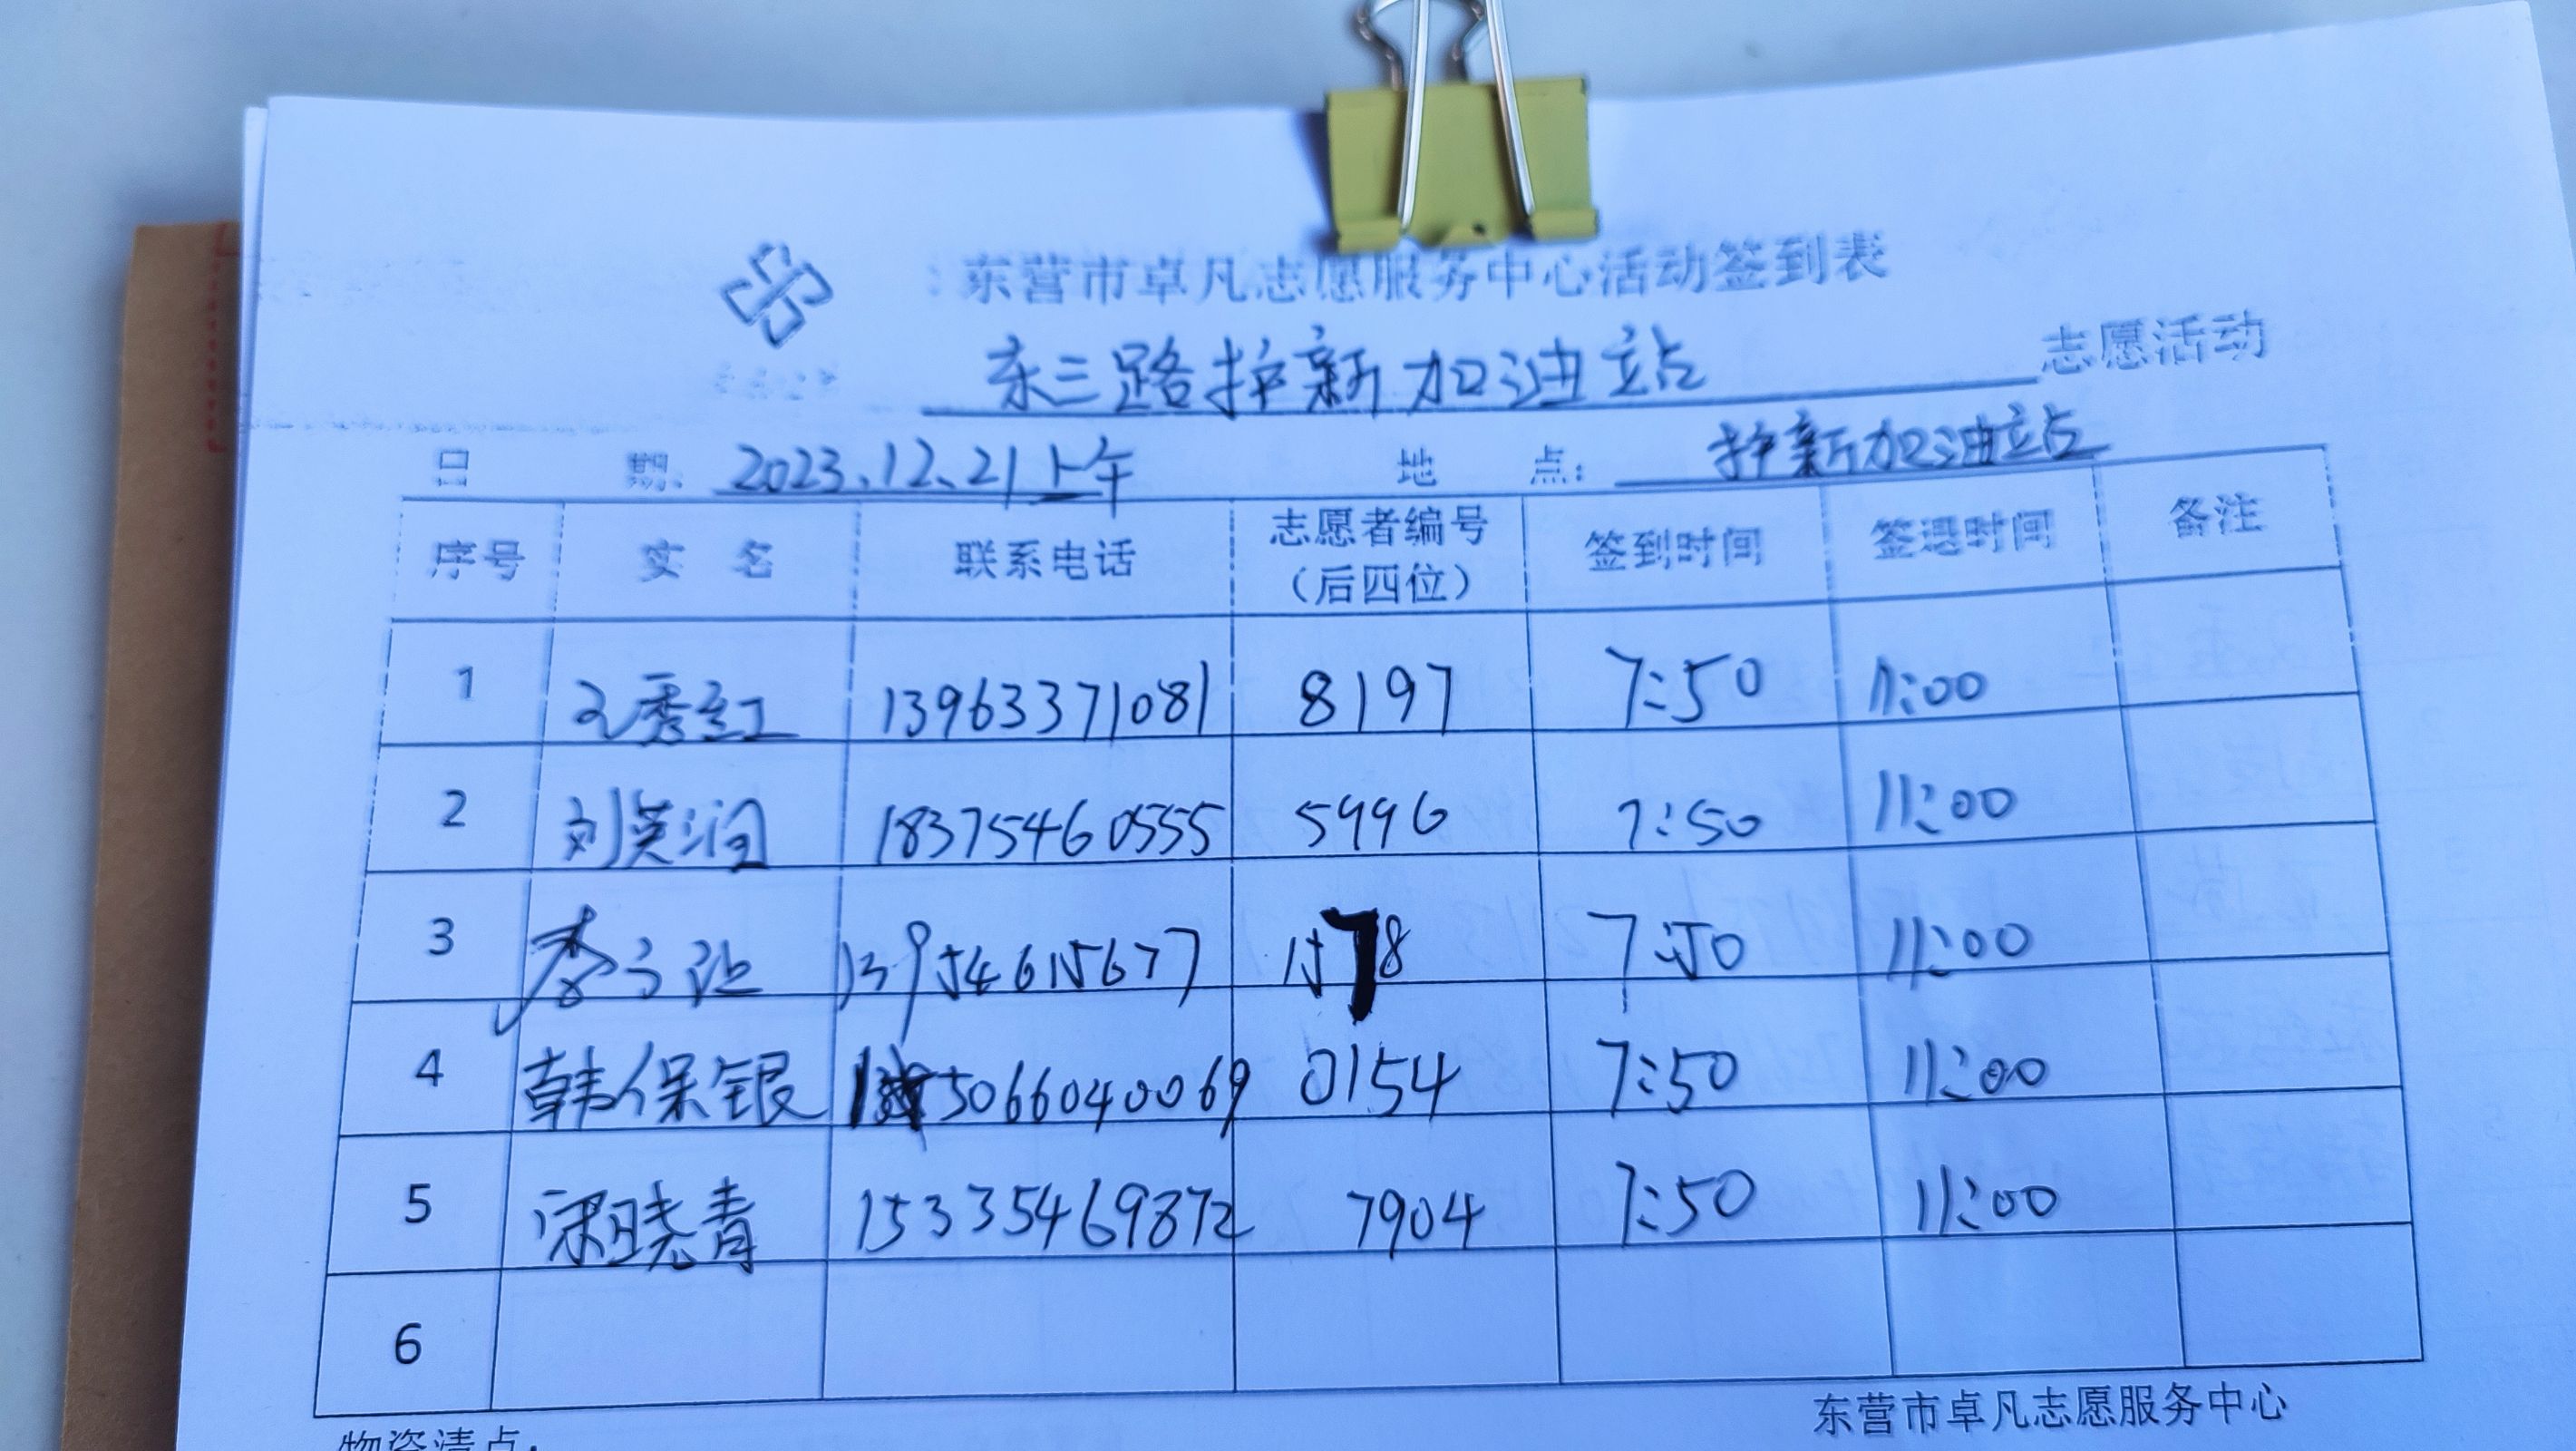 东营市卓凡志愿服务中心活动签到表
东三路护新加油站 志愿活动
日 期: 2023.12.21上午 地 点: 护新加油站
序号 实 名 联系电话 志愿者编号（后四位） 签到时间 签退时间 备注
1 秀红 13963371081 8197 7:50 11:00
2 刘英润 18375460555 5996 7:50 11:00
3 李 13954615677 1578 7:50 11:00
4 韩保银 15066040069 0154 7:50 11:00
5 梁晓青 15335469872 7904 7:50 11:00
6
东营市卓凡志愿服务中心
物资清点: